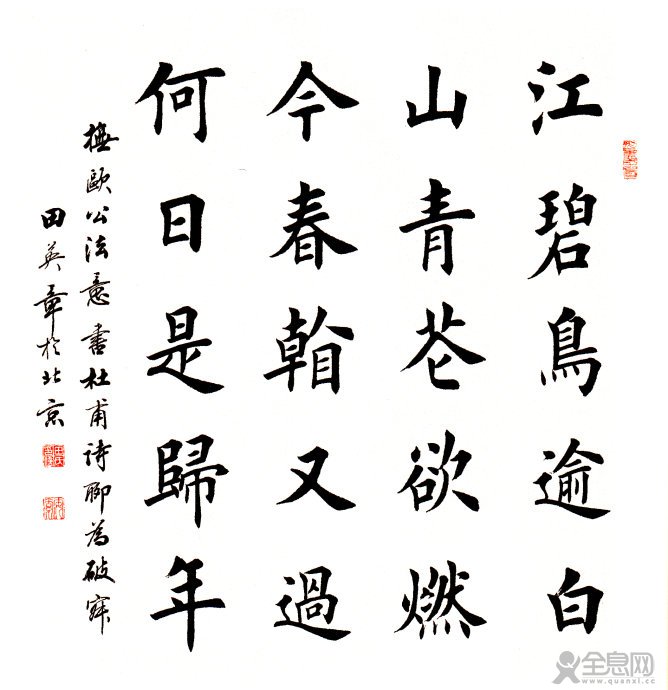 江碧鳥逾白
山青花欲燃
今春看又過
何日是歸年
橅歐公法意書杜甫詩聊為破寂
田英章於北京
全息网
www.quanxi.cc